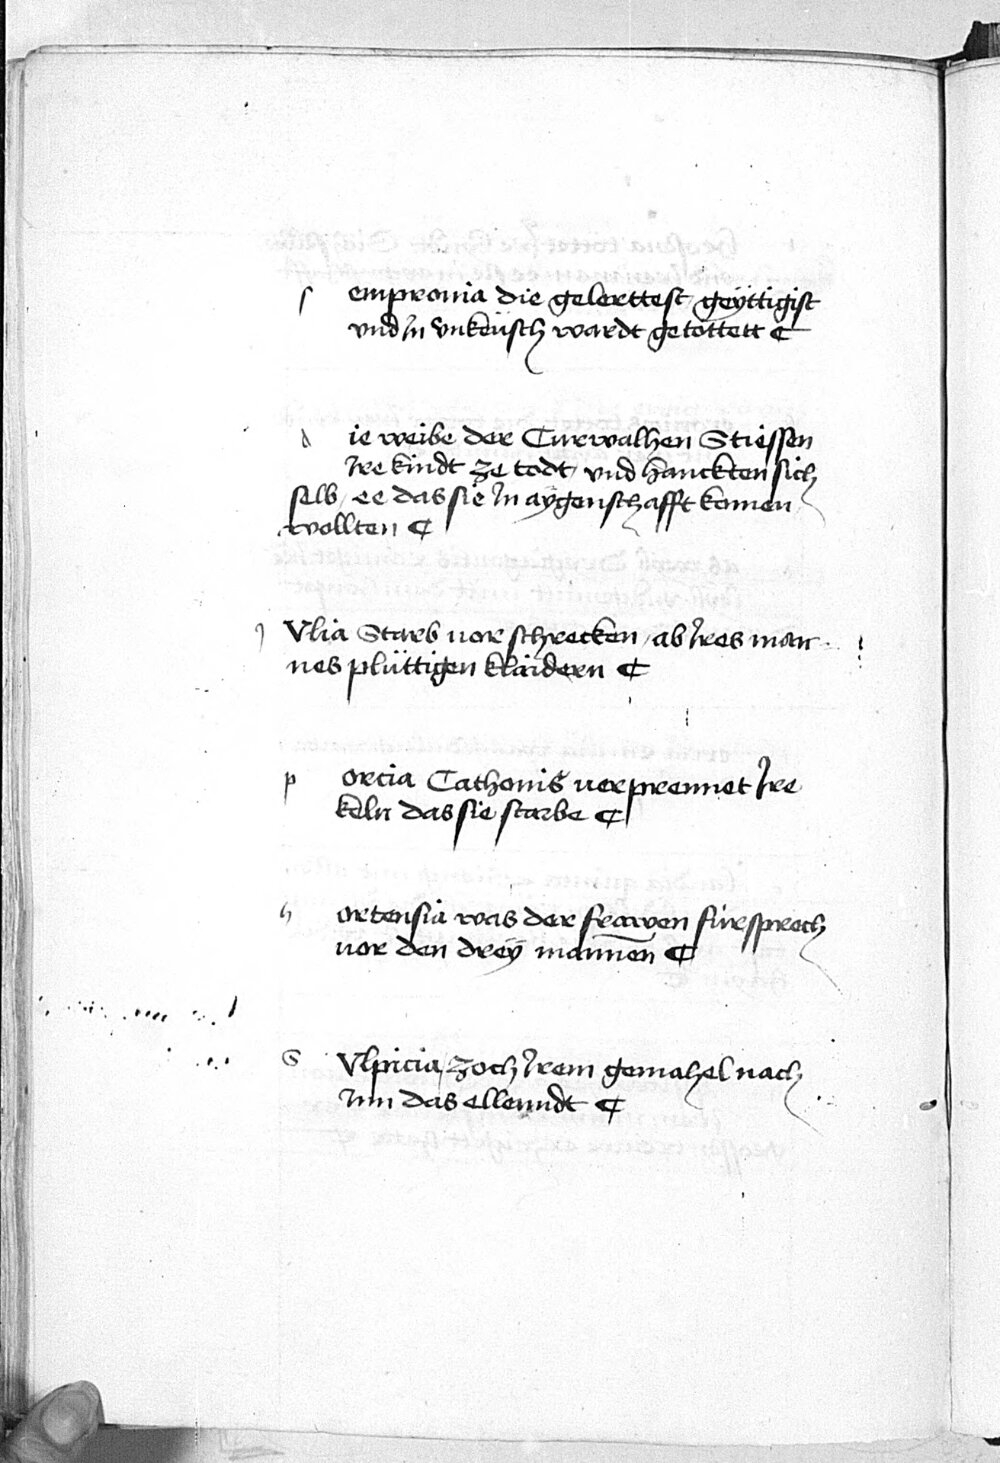 s empronia die gelerttest / geÿttigist
vnd Jn vnkeüsch wardt getöttett ¶
d ie weibe der Curwalhen Stiessen
Jre kindt ze todt / vnd hanckten sich
selb / ee das sie Jn aÿgenschafft komen
wollten ¶
J Vlia Starb uor schrecken / ab Jres man
nes plüttigen klaidern ¶
p orcia Cathonis uerprennet Jre
keln das sie starbe ¶
h ortensia was der frawen fürsprech
uor den dreÿ mannen ¶
S Vlpicia / zoch Jrem gemahel nach
Jnn das ellenndt ¶